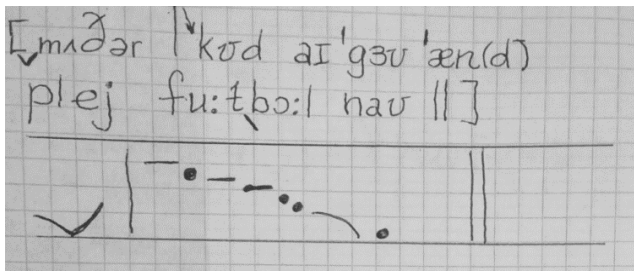 [ˬmʌðər | ˈkʊd aɪ ˈgɜʊ ˈæn(d)
plej fu:tˎbɔ:l naʊ ||]